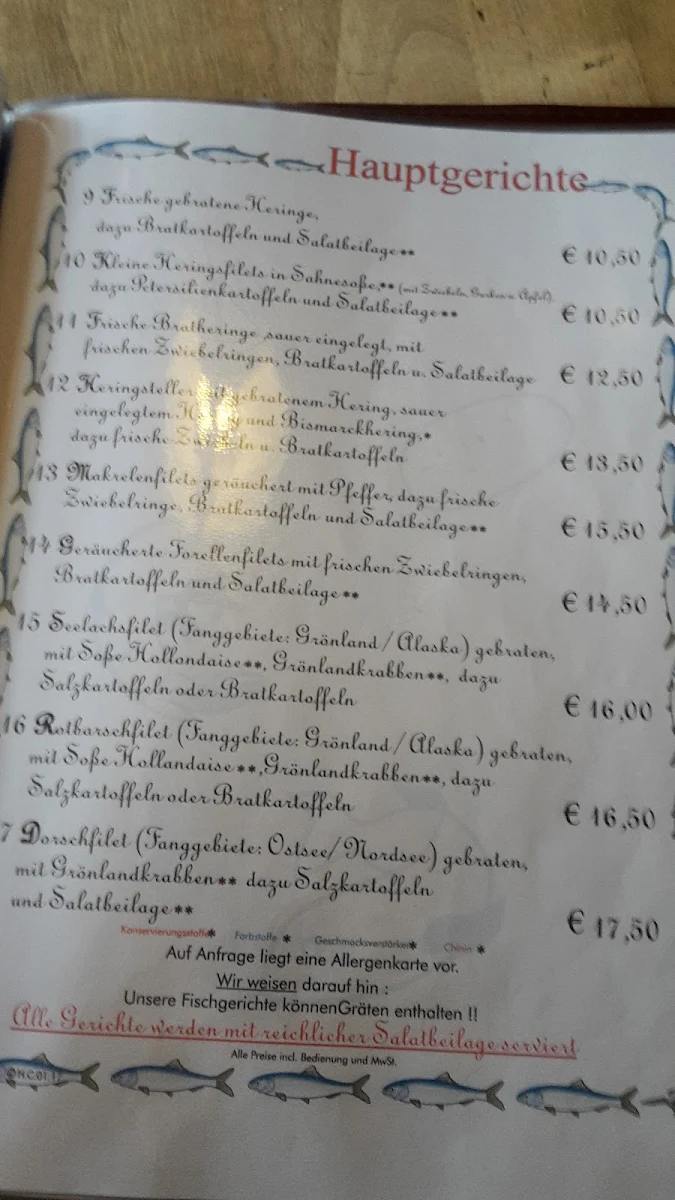 Hauptgerichte
9 Frische gebratene Heringe,
dazu Bratkartoffeln und Salatbeilage** € 10,50
10 Kleine Heringsfilets in Sahnesoße,** (mit Zwiebeln, Gurken u. Äpfel),
dazu Petersilienkartoffeln und Salatbeilage ** € 10,50
11 Frische Bratheringe sauer eingelegt, mit
frischen Zwiebelringen, Bratkartoffeln u. Salatbeilage € 12,50
12 Heringsteller mit gebratenem Hering, sauer
eingelegtem Hering und Bismarckhering,*
dazu frische Zwiebeln u. Bratkartoffeln € 13,50
13 Makrelenfilets geräuchert mit Pfeffer, dazu frische
Zwiebelringe, Bratkartoffeln und Salatbeilage ** € 15,50
14 Geräucherte Forellenfilets mit frischen Zwiebelringen,
Bratkartoffeln und Salatbeilage ** € 14,50
15 Seelachsfilet (Fanggebiete: Grönland / Alaska) gebraten,
mit Soße Hollondaise **, Grönlandkrabben **, dazu
Salzkartoffeln oder Bratkartoffeln € 16,00
16 Rotbarschfilet (Fanggebiete: Grönland / Alaska) gebraten,
mit Soße Hollandaise **, Grönlandkrabben **, dazu
Salzkartoffeln oder Bratkartoffeln € 16,50
7 Dorschfilet (Fanggebiete: Ostsee/ Nordsee) gebraten,
mit Grönlandkrabben ** dazu Salzkartoffeln
und Salatbeilage ** € 17,50
Konservierungsstoffe* Farbstoffe * Geschmacksverstärker* Chinin *
Auf Anfrage liegt eine Allergenkarte vor.
Wir weisen darauf hin :
Unsere Fischgerichte könnenGräten enthalten !!
Alle Gerichte werden mit reichlicher Salatbeilage serviert
Alle Preise incl. Bedienung und MwSt.